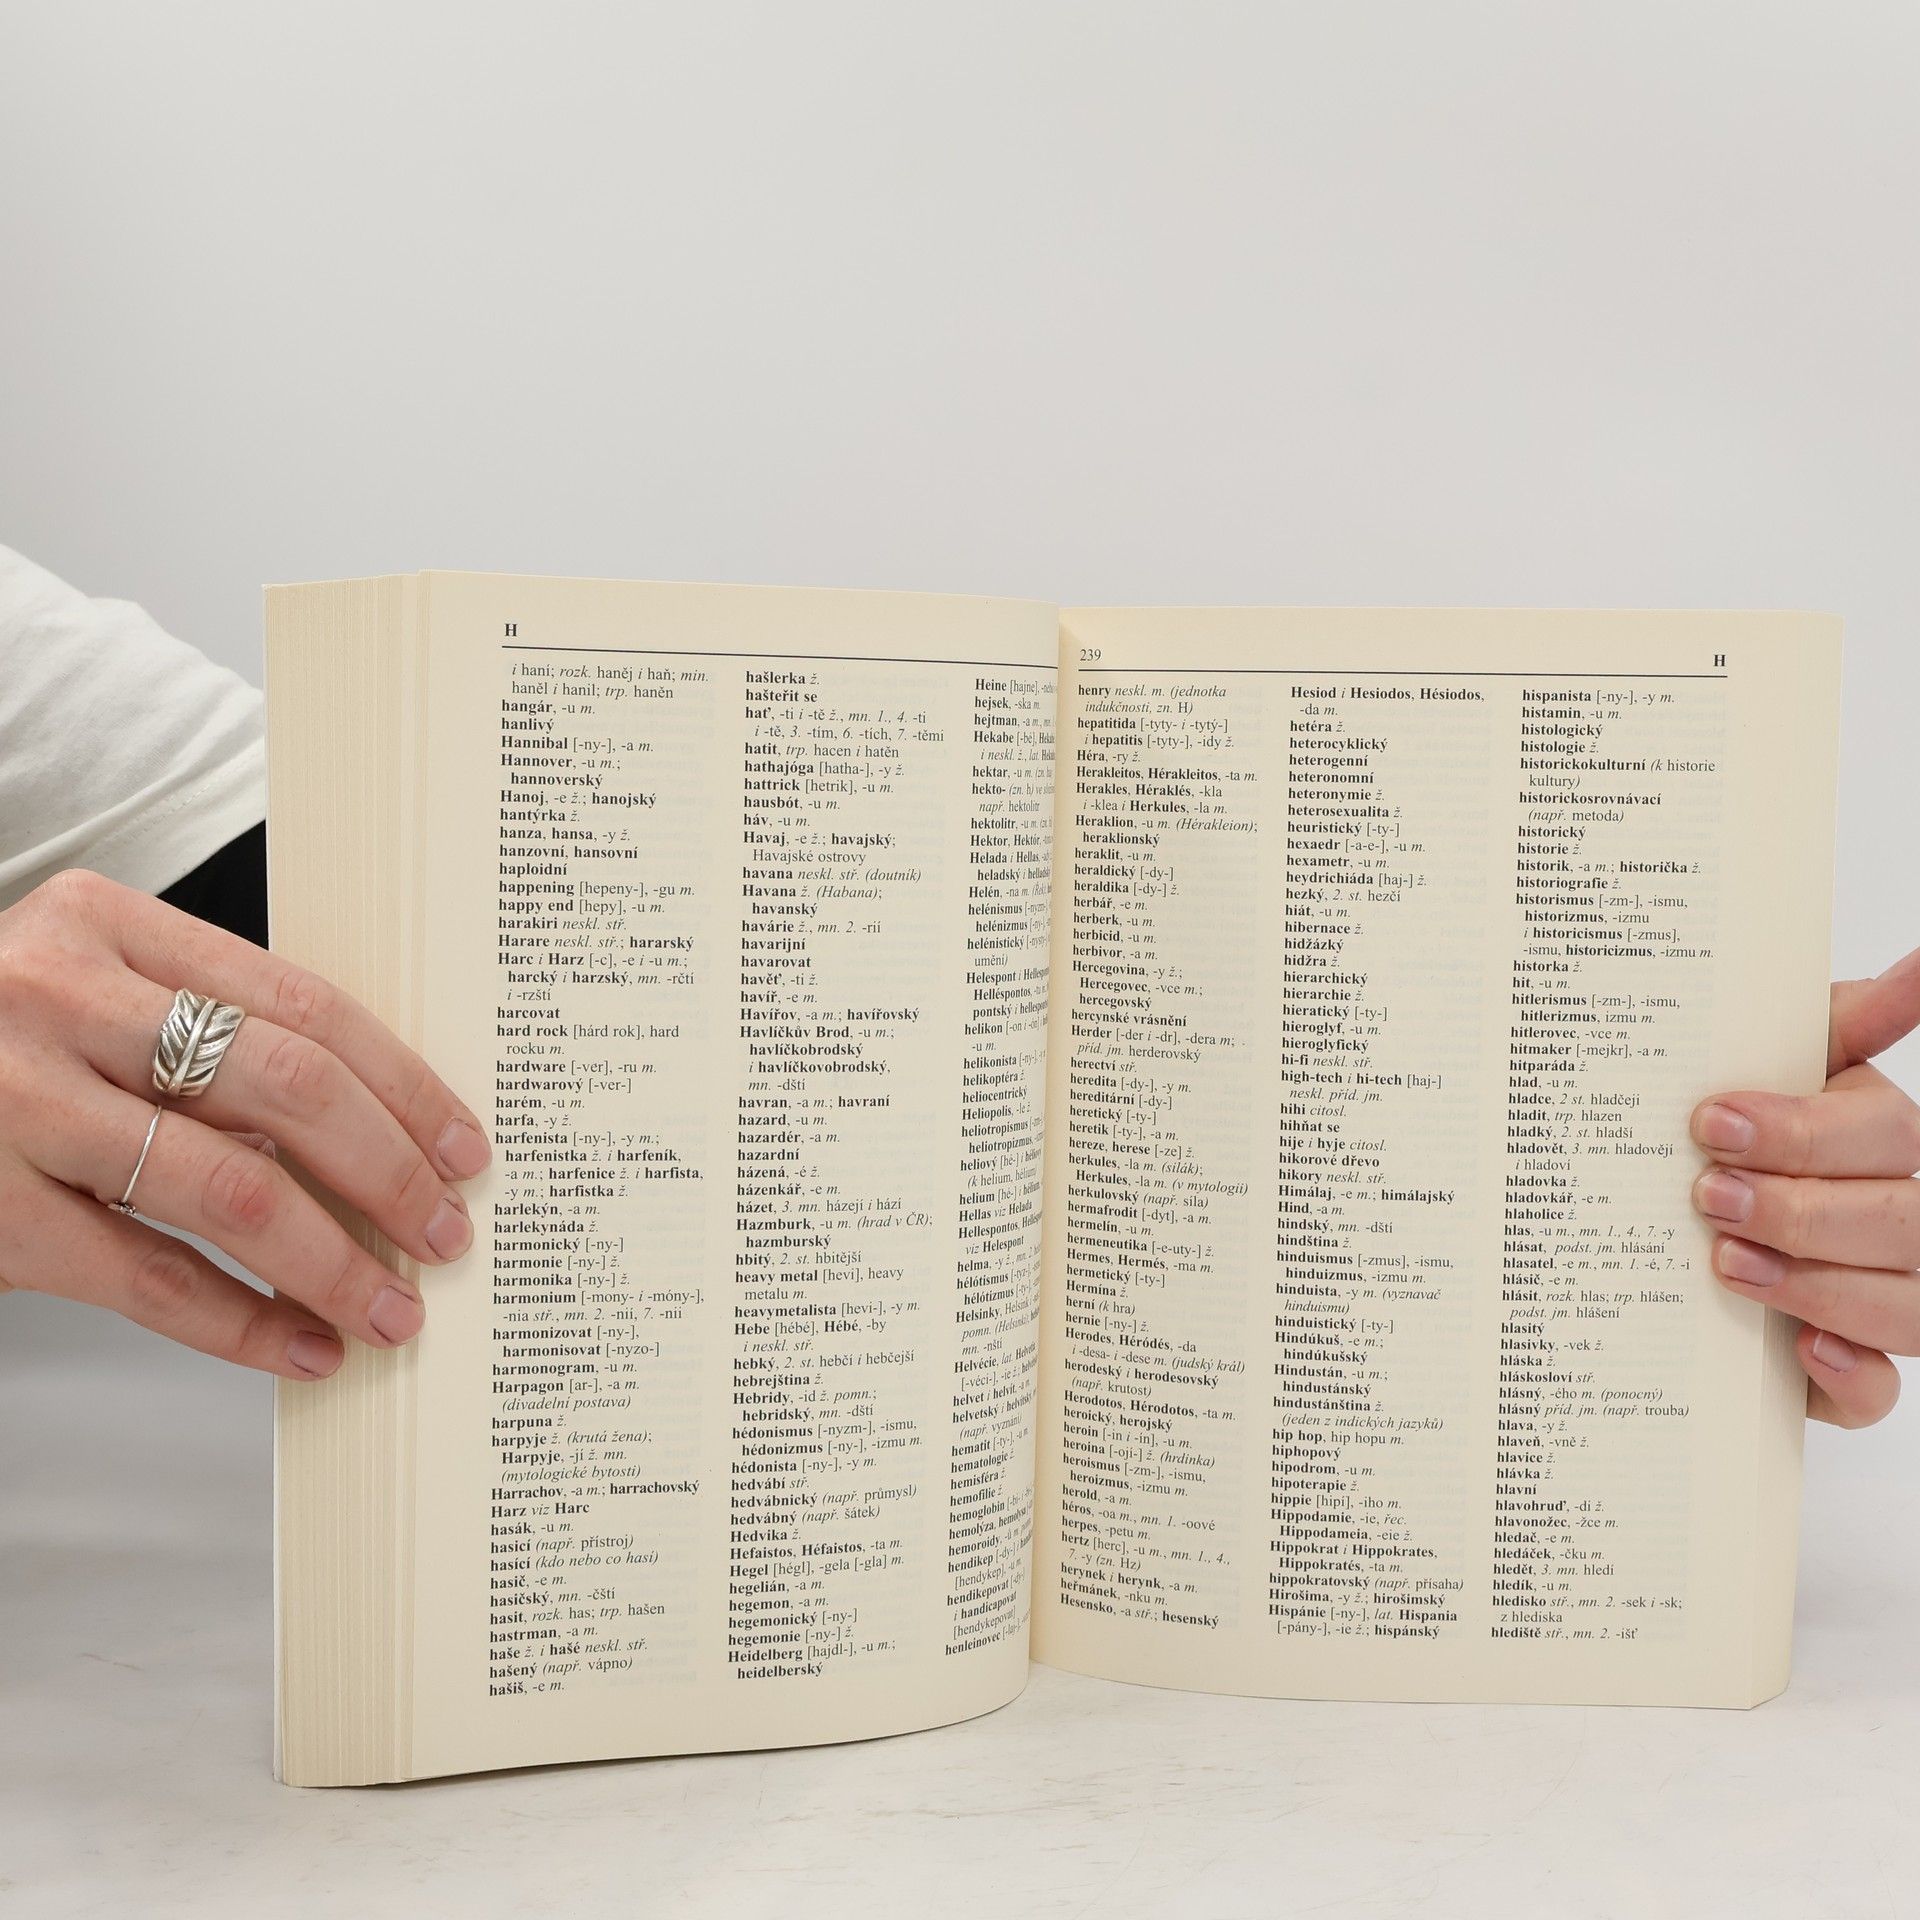 H
i haní; rozk. haněj i haň; min.
haněl i hanil; trp. haněn
hangár, -u m.
hanlivý
Hannibal [-ny-], -a m.
Hannover, -u m.;
hannoverský
Hanoj, -e ž.; hanojský
hantýrka ž.
hanza, hansa, -y ž.
hanzovní, hansovní
haploidní
happening [hepeny-], -gu m.
happy end [hepy], -u m.
harakiri neskl. stř.
Harare neskl. stř.; hararský
Harc i Harz [-c], -e i -u m.;
harcký i harzský, mn. -rčtí
i -rzští
harcovat
hard rock [hárd rok], hard
rocku m.
hardware [-ver], -ru m.
hardwarový [-ver-]
harém, -u m.
harfa, -y ž.
harfenista [-ny-], -y m.;
harfenistka ž. i harfeník,
-a m.; harfenice ž. i harfista,
-y m.; harfistka ž.
harlekýn, -a m.
harlekynáda ž.
harmonický [-ny-]
harmonie [-ny-] ž.
harmonika [-ny-] ž.
harmonium [-mony- i -móny-],
-nia stř., mn. 2. -nií, 7. -nii
harmonizovat [-ny-],
harmonisovat [-nyzo-]
harmonogram, -u m.
Harpagon [ar-], -a m.
(divadelní postava)
harpuna ž.
harpyje ž. (krutá žena);
Harpyje, -jí ž. mn.
(mytologické bytosti)
Harrachov, -a m.; harrachovský
Harz viz Harc
hasák, -u m.
hasicí (např. přístroj)
hasící (kdo nebo co hasí)
hasič, -e m.
hasičský, mn. -čští
hasit, rozk. has; trp. hašen
hastrman, -a m.
haše ž. i hašé neskl. stř.
hašený (např. vápno)
hašiš, -e m.
hašlerka ž.
hašteřit se
hať, -ti i -tě ž., mn. 1., 4. -ti
i -tě, 3. -tím, 6. -tích, 7. -těmi
hatit, trp. hacen i hatěn
hathajóga [hatha-], -y ž.
hattrick [hetrik], -u m.
hausbót, -u m.
háv, -u m.
Havaj, -e ž.; havajský;
Havajské ostrovy
havana neskl. stř. (doutník)
Havana ž. (Habana);
havanský
havárie ž., mn. 2. -rií
havarijní
havarovat
havěť, -ti ž.
havíř, -e m.
Havířov, -a m.; havířovský
Havlíčkův Brod, -u m.;
havlíčkobrodský
i havlíčkovobrodský,
mn. -dští
havran, -a m.; havraní
hazard, -u m.
hazardér, -a m.
hazardní
házená, -é ž.
házenkář, -e m.
házet, 3. mn. házejí i hází
Hazmburk, -u m. (hrad v ČR);
hazmburský
hbitý, 2. st. hbitější
heavy metal [heví], heavy
metalu m.
heavymetalista [hevi-], -y m.
Hebe [hébé], Hébé, -by
i neskl. stř.
hebký, 2. st. hebčí i hebčejší
hebrejština ž.
Hebridy, -id ž. pomn.;
hebridský, mn. -dští
hédonismus [-nyzm-], -ismu,
hédonizmus [-ny-], -izmu m.
hédonista [-ny-], -y m.
hedvábí stř.
hedvábnický (např. průmysl)
hedvábný (např. šátek)
Hedvika ž.
Hefaistos, Héfaistos, -ta m.
Hegel [hégl], -gela [-gla] m.
hegelián, -a m.
hegemon, -a m.
hegemonický [-ny-]
hegemonie [-ny-] ž.
Heidelberg [hajdl-], -u m.;
heidelberský
Heine [hajne],
hejsek, -ska m.
hejtman, -a m.,
Hekabe [-bé],
i neskl. ž., lat.
hektar, -u m. (zn.
hekto- (zn. h) ve
např. hektolitr
hektolitr, -u m.
Hektor, Hektór,
Helada i Hellas,
heladský i
Helén, -na m.
helénismus [-nyzm-],
helénizmus [-ny-],
helénistický
umění)
Helespont i
Helléspontos,
pontský i
helikon [-on i -ón]
-u m.
helikonista [-ny-],
helikoptéra ž.
heliocentrický
Heliopolis, -le ž.
heliotropismus
heliotropizmus,
heliový [hé-] i
(k helium, hélium)
helium [hé-] i
Hellas viz Helada
Hellespontos,
viz Helespont
helma, -y ž.,
hélótismus
hélótizmus
Helsinky,
pomn. (Helsinki);
mn. -nští
Helvécie, lat.
[-véci-], -ie ž.;
helvet i helvít, -a m.
helvetský i
(např. vyznání)
hematit [-ty-], -u m.
hematologie ž.
hemisféra ž.
hemofilie ž.
hemoglobin
hemolýza,
hemoroidy,
hendikep [-dy-] i
[hendykep], -u m.
hendikepovat [-dy-]
i handicapovat
[hendykepovat]
henleinovec
239
H
henry neskl. m. (jednotka
indukčnosti, zn. H)
hepatitida [-tyty- i -tytý-]
i hepatitis [-tyty-], -idy ž.
Héra, -ry ž.
Herakleitos, Hérakleitos, -ta m.
Herakles, Héraklés, -kla
i -klea i Herkules, -la m.
Heraklion, -u m. (Hérakleion);
heraklionský
heraklit, -u m.
heraldický [-dy-]
heraldika [-dy-] ž.
herbář, -e m.
herberk, -u m.
herbicid, -u m.
herbivor, -a m.
Hercegovina, -y ž.;
Hercegovec, -vce m.;
hercegovský
hercynské vrásnění
Herder [-der i -dr], -dera m;
příd. jm. herderovský
herectví stř.
heredita [-dy-], -y m.
hereditární [-dy-]
heretický [-ty-]
heretik [-ty-], -a m.
hereze, herese [-ze] ž.
herkules, -la m. (silák);
Herkules, -la m. (v mytologii)
herkulovský (např. síla)
hermafrodit [-dyt], -a m.
hermelín, -u m.
hermeneutika [-e-uty-] ž.
Hermes, Hermés, -ma m.
hermetický [-ty-]
Hermína ž.
herní (k hra)
hernie [-ny-] ž.
Herodes, Héródés, -da
i -desa- i -dese m. (judský král)
herodeský i herodesovský
(např. krutost)
Herodotos, Hérodotos, -ta m.
heroický, herojský
heroin [-in i -ín], -u m.
heroina [-ojí-] ž. (hrdinka)
heroismus [-zm-], -ismu,
heroizmus, -izmu m.
herold, -a m.
héros, -oa m., mn. 1. -oové
herpes, -petu m.
hertz [herc], -u m., mn. 1., 4.,
7. -y (zn. Hz)
herynek i herynk, -a m.
heřmánek, -nku m.
Hesensko, -a stř.; hesenský
Hesiod i Hesiodos, Hésiodos,
-da m.
hetéra ž.
heterocyklický
heterogenní
heteronomní
heteronymie ž.
heterosexualita ž.
heuristický [-ty-]
hexaedr [-a-e-], -u m.
hexametr, -u m.
heydrichiáda [haj-] ž.
hezký, 2. st. hezčí
hiát, -u m.
hibernace ž.
hidžázký
hidžra ž.
hierarchický
hierarchie ž.
hieratický [-ty-]
hieroglyf, -u m.
hieroglyfický
hi-fi neskl. stř.
high-tech i hi-tech [haj-]
neskl. příd. jm.
hihi citosl.
hihňat se
hije i hyje citosl.
hikorové dřevo
hikory neskl. stř.
Himálaj, -e m.; himálajský
Hind, -a m.
hindský, mn. -dští
hindština ž.
hinduismus [-zmus], -ismu,
hinduizmus, -izmu m.
hinduista, -y m. (vyznavač
hinduismu)
hinduistický [-ty-]
Hindúkuš, -e m.;
hindúkušský
Hindustán, -u m.;
hindustánský
hindustánština ž.
(jeden z indických jazyků)
hip hop, hip hopu m.
hiphopový
hipodrom, -u m.
hipoterapie ž.
hippie [hipí], -iho m.
Hippodamie, -ie, řec.
Hippodameia, -eie ž.
Hippokrat i Hippokrates,
Hippokratés, -ta m.
hippokratovský (např. přísaha)
Hirošima, -y ž.; hirošimský
Hispánie [-ny-], lat. Hispania
[-pány-], -ie ž.; hispánský
hispanista [-ny-], -y m.
histamin, -u m.
histologický
histologie ž.
historickokulturní (k historie
kultury)
historickosrovnávací
(např. metoda)
historický
historie ž.
historik, -a m.; historička ž.
historiografie ž.
historismus [-zm-], -ismu,
historizmus, -izmu
i historicismus [-zmus],
-ismu, historicizmus, -izmu m.
historka ž.
hit, -u m.
hitlerismus [-zm-], -ismu,
hitlerizmus, izmu m.
hitlerovec, -vce m.
hitmaker [-mejkr], -a m.
hitparáda ž.
hlad, -u m.
hladce, 2 st. hladčeji
hladit, trp. hlazen
hladký, 2. st. hladší
hladovět, 3. mn. hladovějí
i hladoví
hladovka ž.
hladovkář, -e m.
hlaholice ž.
hlas, -u m., mn. 1., 4., 7. -y
hlásat, podst. jm. hlásání
hlasatel, -e m., mn. 1. -é, 7. -i
hlásič, -e m.
hlásit, rozk. hlas; trp. hlášen;
podst. jm. hlášení
hlasitý
hlasivky, -vek ž.
hláska ž.
hláskosloví stř.
hlásný, -ého m. (ponocný)
hlásný příd. jm. (např. trouba)
hlava, -y ž.
hlaveň, -vně ž.
hlavice ž.
hlávka ž.
hlavní
hlavohruď, -di ž.
hlavonožec, -žce m.
hledač, -e m.
hledáček, -čku m.
hledět, 3. mn. hledí
hledík, -u m.
hledisko stř., mn. 2. -sek i -sk;
z hlediska
hlediště stř., mn. 2. -išť